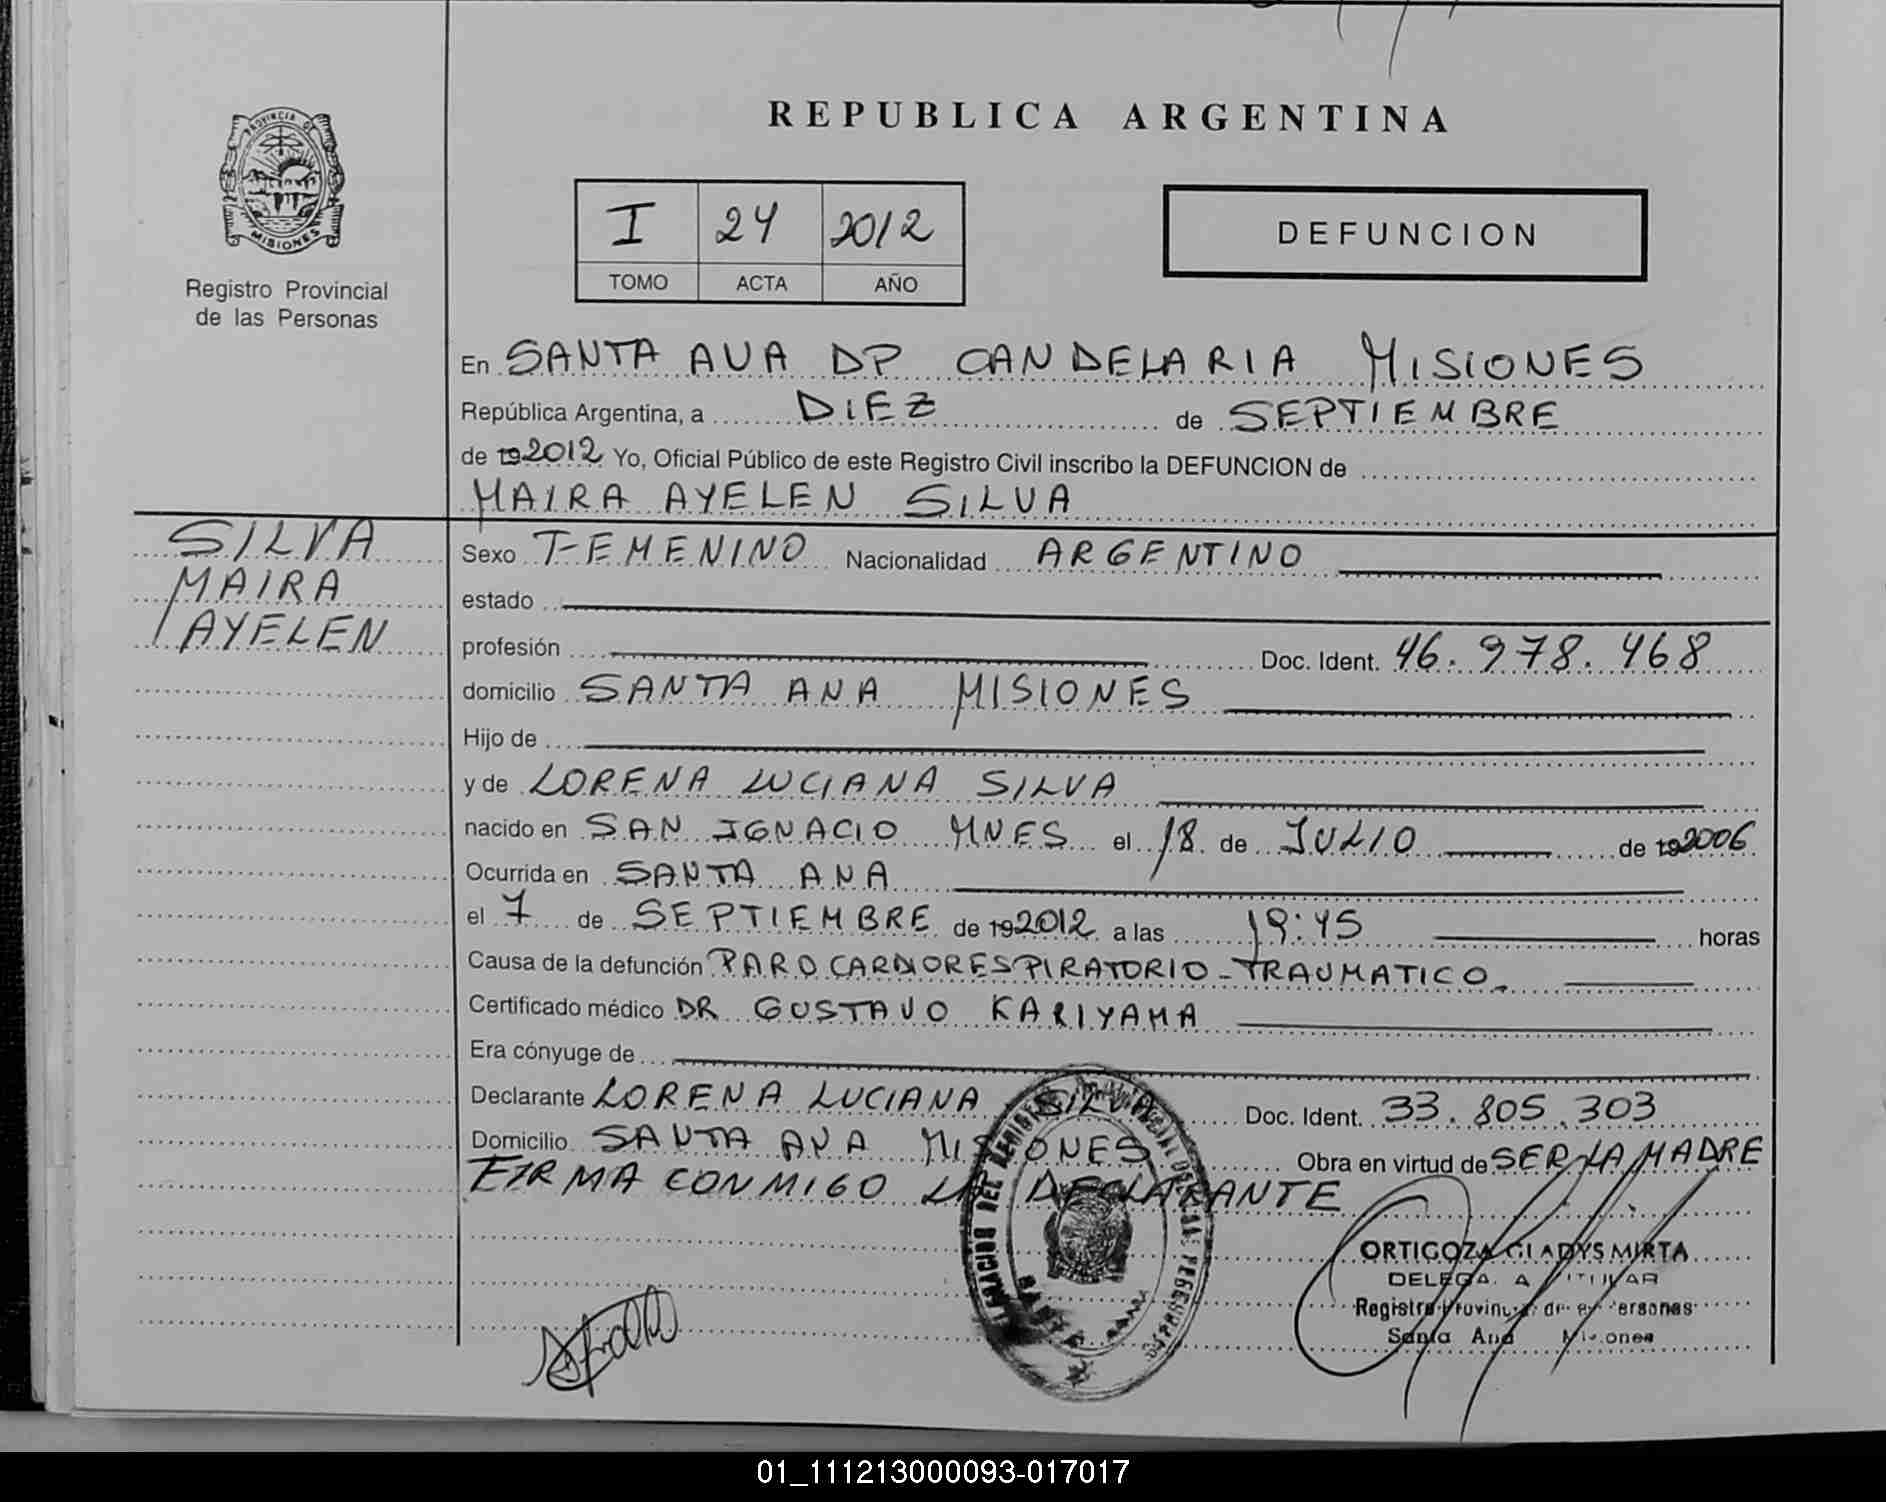 REPUBLICA ARGENTINA
PROVINCIA DE
MISIONES
Registro Provincial
de las Personas
I 24 2012
TOMO ACTA AÑO
DEFUNCION
En SANTA ANA DP CANDELARIA MISIONES
República Argentina, a DIEZ de SEPTIEMBRE
de 192012 Yo, Oficial Público de este Registro Civil inscribo la DEFUNCION de
MAIRA AYELEN SILVA
SILVA
MAIRA
AYELEN
Sexo FEMENINO Nacionalidad ARGENTINO
estado
profesión Doc. Ident. 46.978.468
domicilio SANTA ANA MISIONES
Hijo de
y de LORENA LUCIANA SILVA
nacido en SAN IGNACIO MNES el 18 de JULIO de 192006
Ocurrida en SANTA ANA
el 7 de SEPTIEMBRE de 192012 a las 19:45 horas
Causa de la defunción PARO CARDIORESPIRATORIO-TRAUMATICO.
Certificado médico DR GUSTAVO KARIYAMA
Era cónyuge de
Declarante LORENA LUCIANA SILVA Doc. Ident. 33.805.303
Domicilio SANTA ANA MISIONES Obra en virtud de SER LA MADRE
FIRMA CONMIGO LA DECLARANTE
ORTIGOZA GLADYS MIRTA
DELEGADA TITULAR
Registro Provincial de las Personas
Santa Ana Misiones
SANTA ANA
01_111213000093-017017